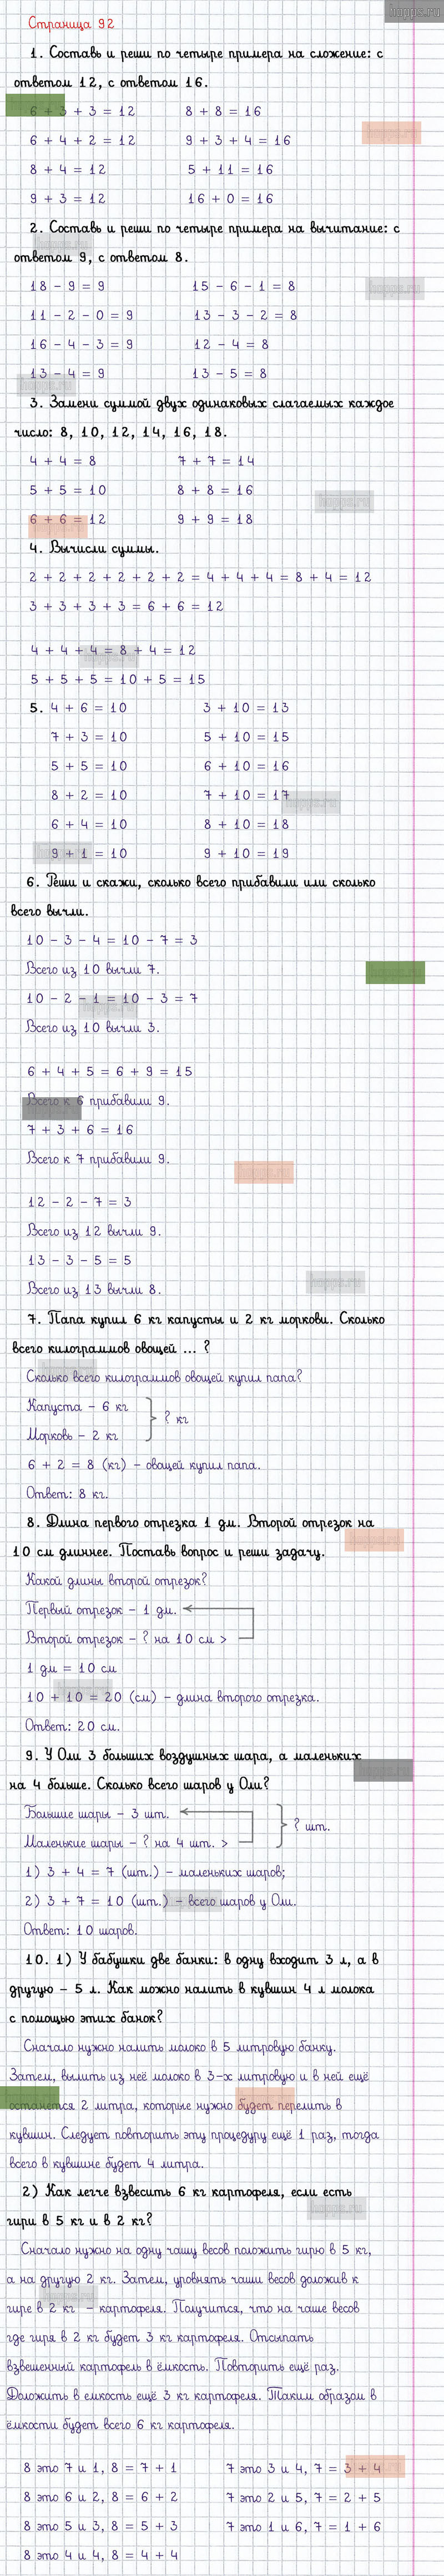 Страница 92
1. Составь и реши по четыре примера на сложение: с
ответом 12, с ответом 16.
6 + 3 + 3 = 12 8 + 8 = 16
6 + 4 + 2 = 12 9 + 3 + 4 = 16
8 + 4 = 12 5 + 11 = 16
9 + 3 = 12 16 + 0 = 16
2. Составь и реши по четыре примера на вычитание: с
ответом 9, с ответом 8.
18 - 9 = 9 15 - 6 - 1 = 8
11 - 2 - 0 = 9 13 - 3 - 2 = 8
16 - 4 - 3 = 9 12 - 4 = 8
13 - 4 = 9 13 - 5 = 8
3. Замени суммой двух одинаковых слагаемых каждое
число: 8, 10, 12, 14, 16, 18.
4 + 4 = 8 7 + 7 = 14
5 + 5 = 10 8 + 8 = 16
6 + 6 = 12 9 + 9 = 18
4. Вычисли суммы.
2 + 2 + 2 + 2 + 2 + 2 = 4 + 4 + 4 = 8 + 4 = 12
3 + 3 + 3 + 3 = 6 + 6 = 12
4 + 4 + 4 = 8 + 4 = 12
5 + 5 + 5 = 10 + 5 = 15
5. 4 + 6 = 10 3 + 10 = 13
7 + 3 = 10 5 + 10 = 15
5 + 5 = 10 6 + 10 = 16
8 + 2 = 10 7 + 10 = 17
6 + 4 = 10 8 + 10 = 18
9 + 1 = 10 9 + 10 = 19
6. Реши и скажи, сколько всего прибавили или сколько
всего вычли.
10 - 3 - 4 = 10 - 7 = 3
Всего из 10 вычли 7.
10 - 2 - 1 = 10 - 3 = 7
Всего из 10 вычли 3.
6 + 4 + 5 = 6 + 9 = 15
Всего к 6 прибавили 9.
7 + 3 + 6 = 16
Всего к 7 прибавили 9.
12 - 2 - 7 = 3
Всего из 12 вычли 9.
13 - 3 - 5 = 5
Всего из 13 вычли 8.
7. Папа купил 6 кг капусты и 2 кг моркови. Сколько
всего килограммов овощей ... ?
Сколько всего килограммов овощей купил папа?
Капуста - 6 кг
? кг
Морковь - 2 кг
6 + 2 = 8 (кг) - овощей купил папа.
Ответ: 8 кг.
8. Длина первого отрезка 1 дм. Второй отрезок на
10 см длиннее. Поставь вопрос и реши задачу.
Какой длины второй отрезок?
Первый отрезок - 1 дм.
Второй отрезок - ? на 10 см >
1 дм = 10 см
10 + 10 = 20 (см) - длина второго отрезка.
Ответ: 20 см.
9. У Оли 3 больших воздушных шара, а маленьких
на 4 больше. Сколько всего шаров у Оли?
Большие шары - 3 шт.
? шт.
Маленькие шары - ? на 4 шт. >
1) 3 + 4 = 7 (шт.) - маленьких шаров;
2) 3 + 7 = 10 (шт.) - всего шаров у Оли.
Ответ: 10 шаров.
10. 1) У бабушки две банки: в одну входит 3 л, а в
другую – 5 л. Как можно налить в кувшин 4 л молока
с помощью этих банок?
Сначало нужно налить молоко в 5 литровую банку.
Затем, вылить из неё молоко в 3-х литровую и в ней ещё
останется 2 литра, которые нужно будет перелить в
кувшин. Следует повторить эту процедуру ещё 1 раз, тогда
всего в кувшине будет 4 литра.
2) Как легче взвесить 6 кг картофеля, если есть
гири в 5 кг и в 2 кг?
Сначало нужно на одну чашу весов положить гирю в 5 кг,
а на другую 2 кг. Затем, уровнять чаши весов доложив к
гире в 2 кг - картофеля. Получится, что на чаше весов
где гиря в 2 кг будет 3 кг картофеля. Отсыпать
взвешенный картофель в ёмкость. Повторить ещё раз.
Доложить в емкость ещё 3 кг картофеля. Таким образом в
ёмкости будет всего 6 кг картофеля.
8 это 7 и 1, 8 = 7 + 1 7 это 3 и 4, 7 = 3 + 4
8 это 6 и 2, 8 = 6 + 2 7 это 2 и 5, 7 = 2 + 5
8 это 5 и 3, 8 = 5 + 3 7 это 1 и 6, 7 = 1 + 6
8 это 4 и 4, 8 = 4 + 4